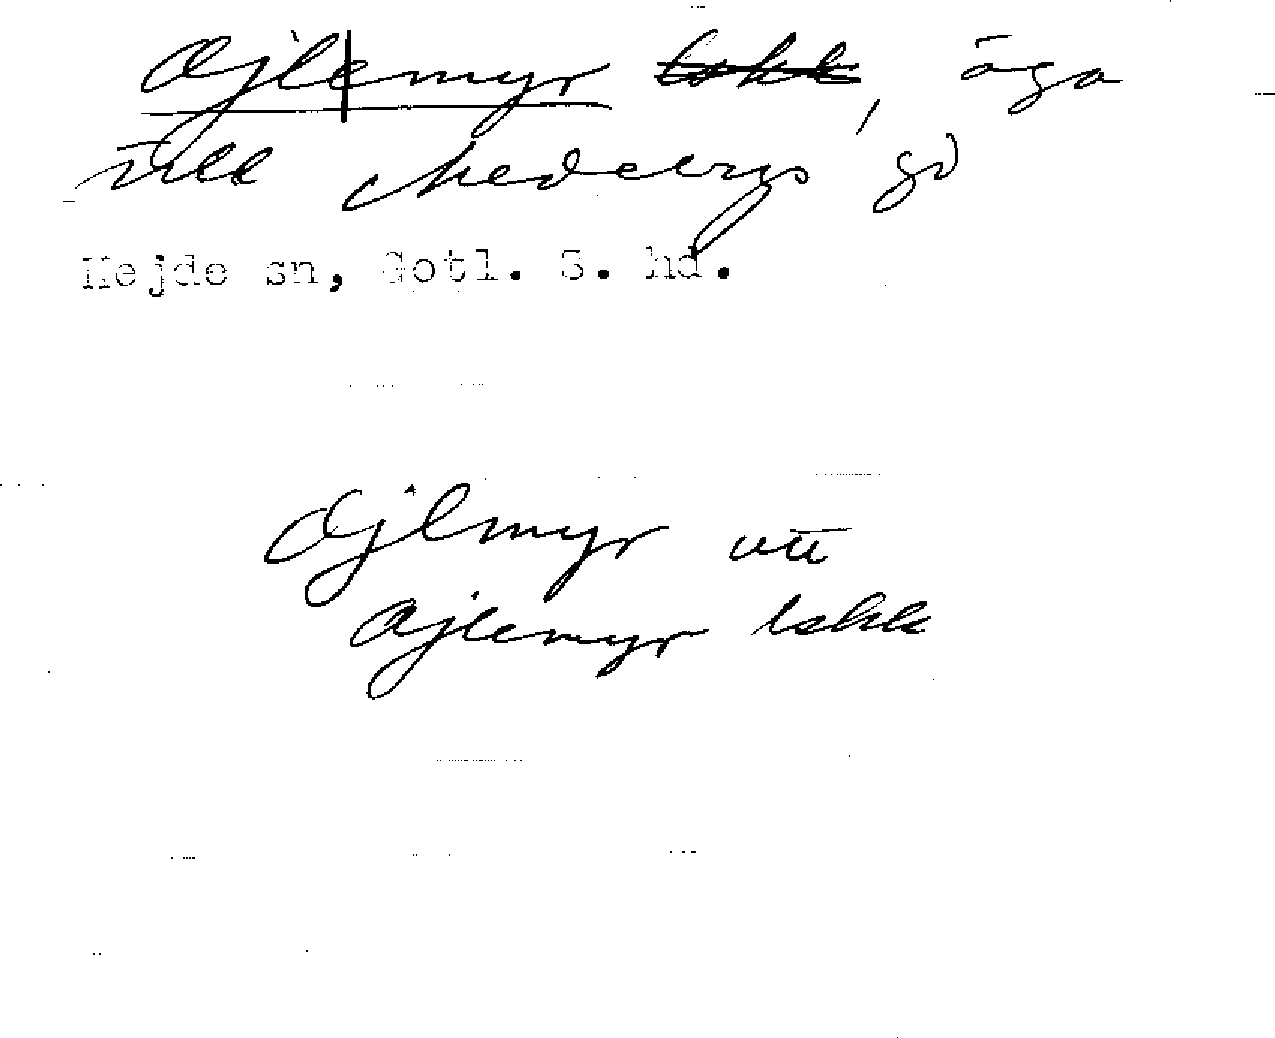 Ajlemyr lskk, äga
till Medebys gd
Hejde sn, Gotl. S. hd.
Ajlmyr utt
Ajlemyr lskk